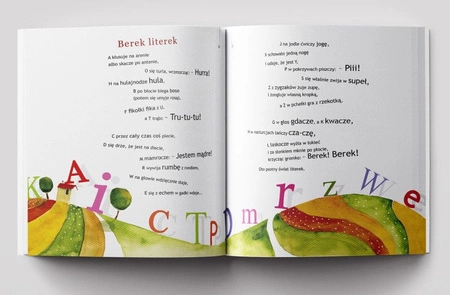 Berek literek
A kłusuje na arenie
albo skacze po antenie,
O się turla, wrzeszcząc: – Hurra!
H na hulajnodze hula.
B po błocie biega boso
(potem się umyje rosą),
F fikołki fika z U,
a T trąbi: – Tru-tu-tu!
C przez cały czas coś piecze,
D się drze, że jest na diecie,
N mamrocze: – Jestem mądre!
R wywija rumbę z rondlem,
W na głowie wdzięcznie staje,
E się z echem w gadki wdaje...
J na jodle ćwiczy jogę,
Ł schowało jedną nogę
i udaje, że jest Y,
P w pokrzywach piszczy: – Piii!
S się właśnie zwija w supeł,
Z z zygzaków żuje zupę,
Ż żongluje własną kropką,
a Ź w pchełki gra z czekotką,
G w głos gdacze, a K kwacze,
L laskocze myśla w łokieć
i za słonkiem mknie po płocie,
krzycząc gromko: – Berek! Berek!
Oto psotny świat literek.
K A i C T P D m r z w e